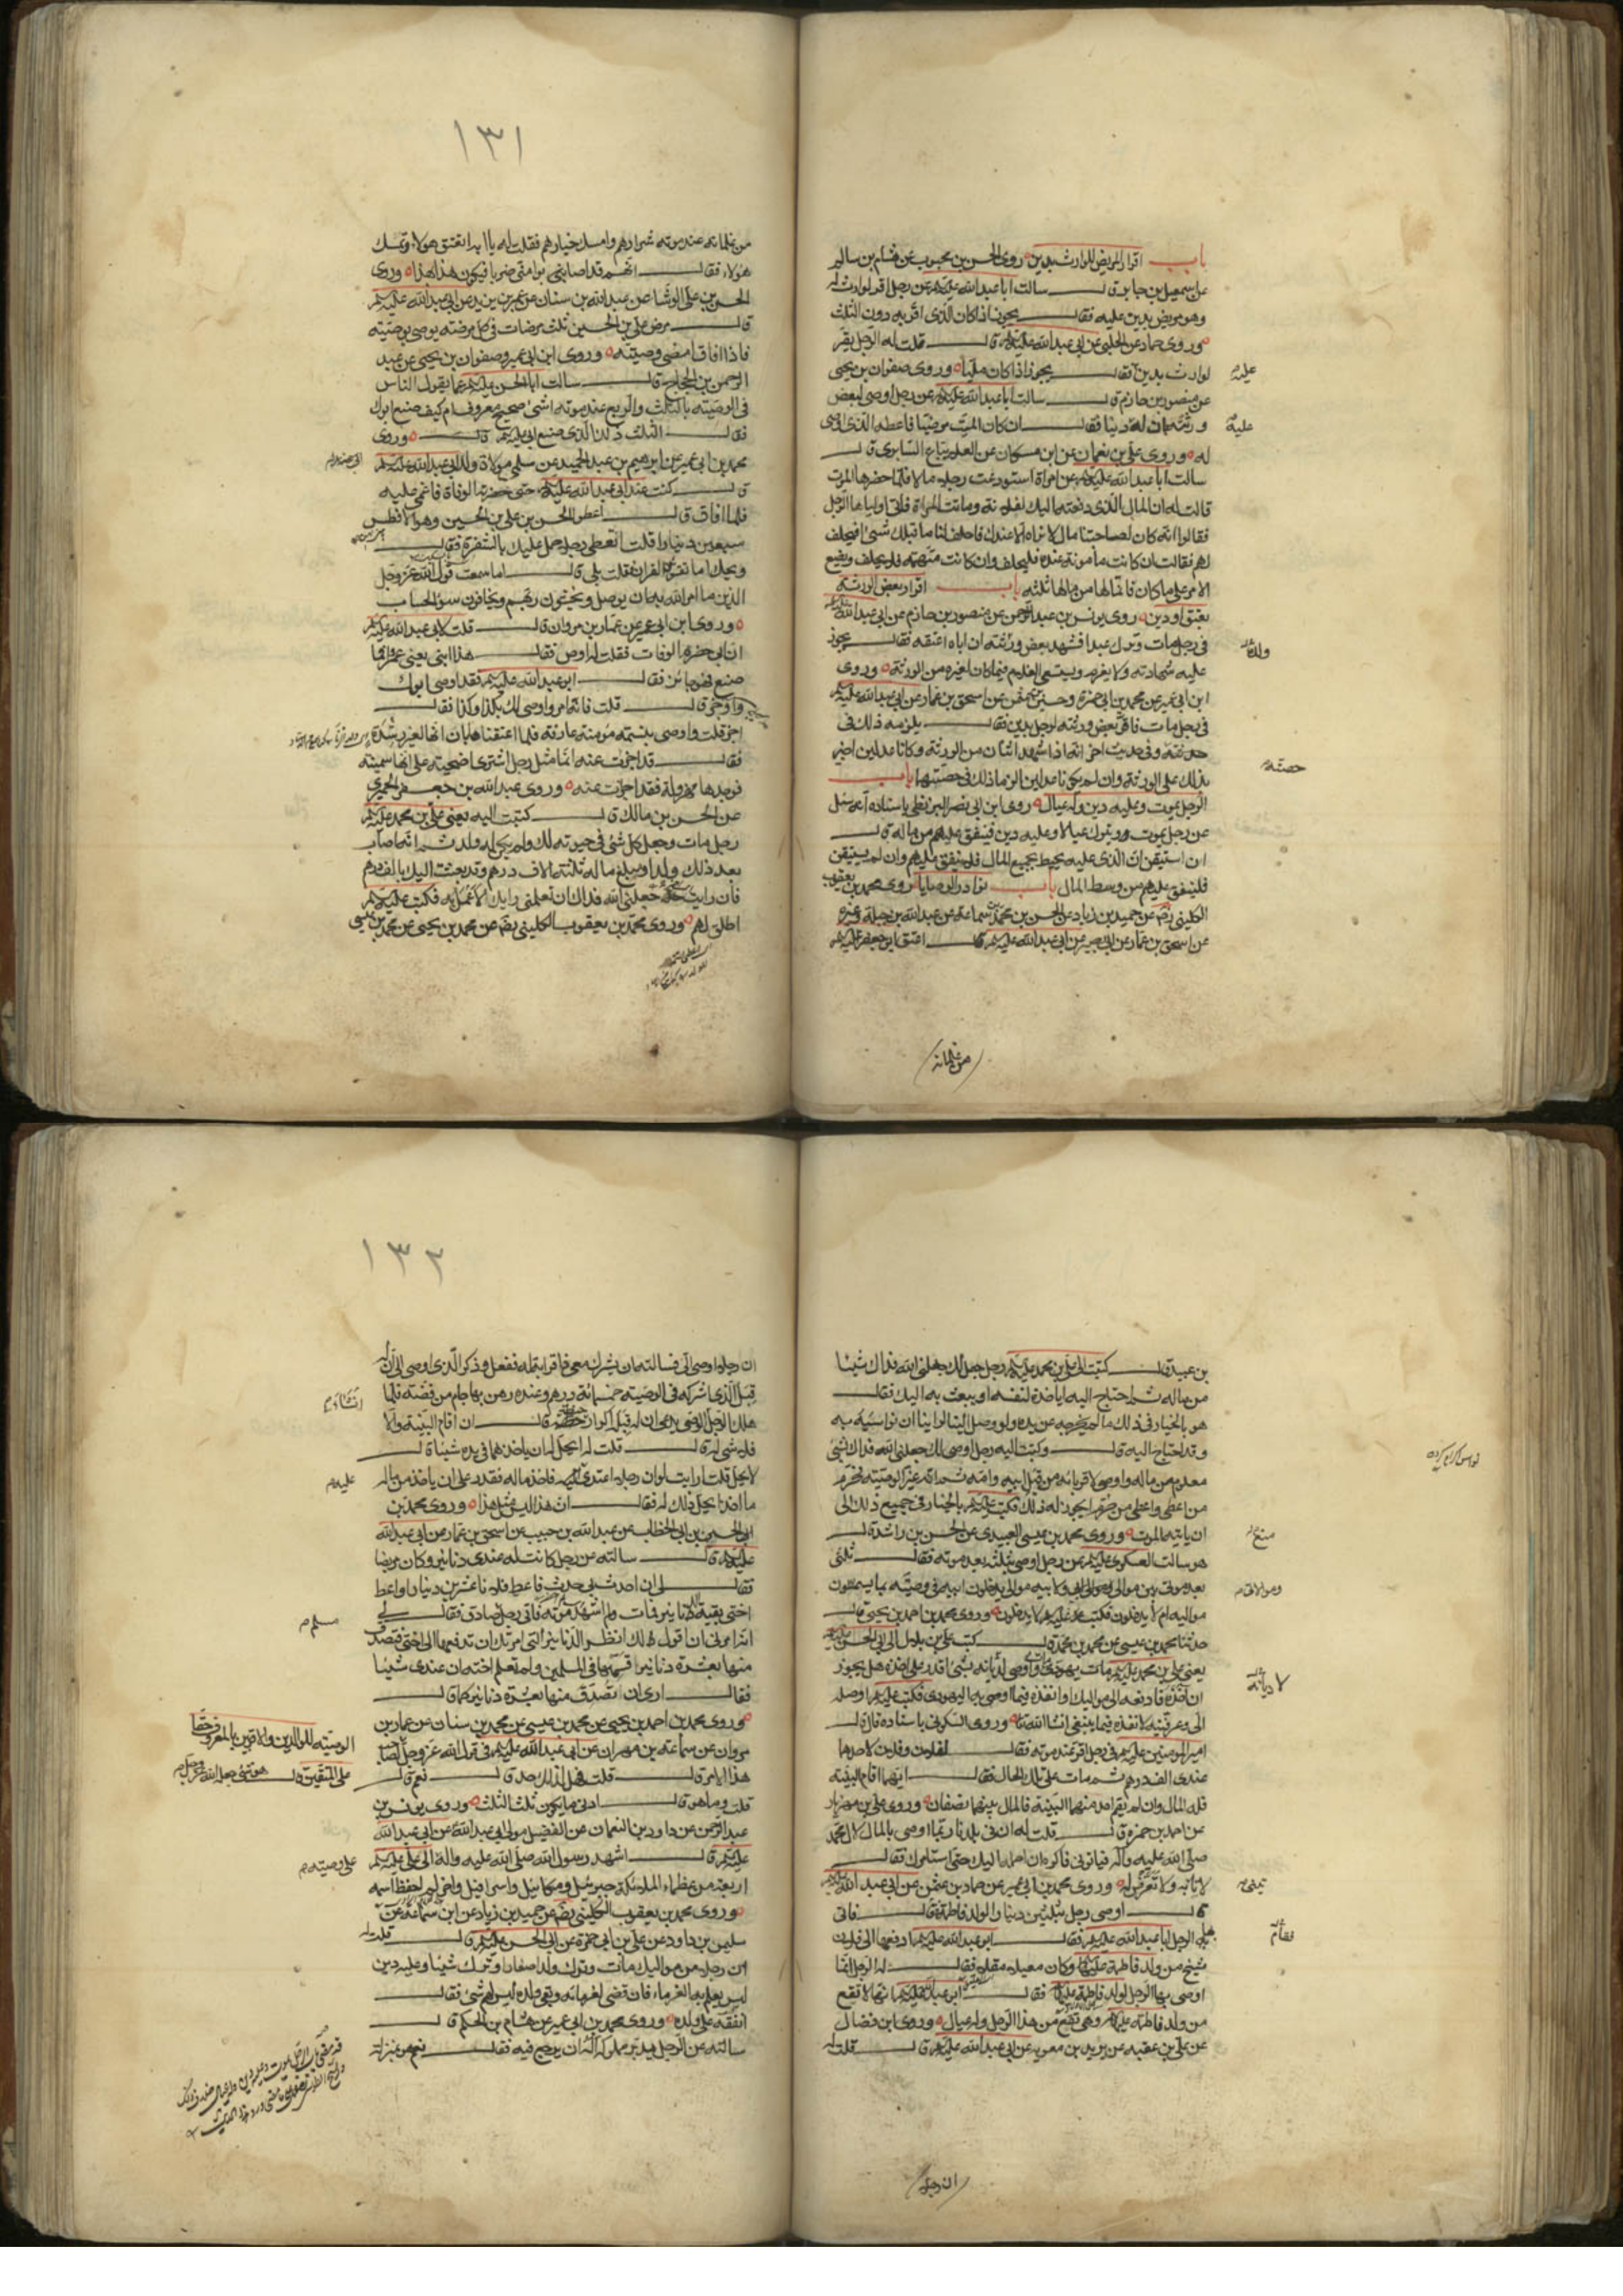 باب اقرار المريض للوارث بدين روى الحسن بن محبوب عن هشام بن سالم
عن اسمعيل بن جابر قال سالت ابا عبد الله عليه عن رجل اقر لوارث له
وهو مريض بدين عليه فقال يجوز اذا كان الذى اقر به دون الثلث
وروى حماد عن الحلبى عن ابى عبد الله عليه قال قلت له الرجل يقر
لوارث بدين فقال يجوز اذا كان مليا وروى صفوان بن يحيى
عليه
عن منصور بن حازم قال سالت ابا عبد الله عليه عن رجل اوصى لبعض
ورثته ان له دينا فقال ان كان الميت مرضيا فاعطه الذى اوصى
عليه
له وروى على بن نعمان عن ابن مسكان عن العلاء بياع السابرى قال
سالت ابا عبد الله عليه عن امراة استودعت رجلا مالا فلما حضرها الموت
قالت له ان المال الذى دفعته اليك لفلانة وماتت المراة فاتى اولياءها الرجل
فقالوا انه كان لصاحبتنا مال لا نراه الا عندك فاحلف لنا ما قبلك شىء افيحلف
لهم فقال ان كانت مامونة عنده فليحلف وان كانت متهمة فلا يحلف ويضع
الامر على ما كان فانما لها من مالها ثلثه باب اقرار بعض الورثة
بعتق او دين روى يونس بن عبد الرحمن عن منصور بن حازم عن ابى عبد الله
فى رجل مات وترك عبدا فشهد بعض ورثته ان اباه اعتقه فقال يجوز
عليه شهادته ولا يغرم ويستسعى الغلام فيما كان لغيره من الورثة وروى
ابن ابى عمير عن محمد بن ابى حمزة وحسين بن عثمن عن اسحق بن عمار عن ابى عبد الله عليه
فى رجل مات فاقر بعض ورثته لرجل بدين فقال يلزمه ذلك فى
حصته وفى حديث اخر انه اذا شهد اثنان من الورثة وكانا عدلين اجيز
حصته
ذلك على الورثة وان لم يكونا عدلين الزما ذلك فى حصتهما باب
الرجل يموت وعليه دين وله عيال روى ابن ابى نصر البزنطى باسناده انه سئل
عن رجل يموت ويترك عيالا وعليه دين فينفق عليهم من ماله قال
ان استيقن ان الذى عليه يحيط بجميع المال فلا ينفق عليهم وان لم يستيقن
فلينفق عليهم من وسط المال باب نوادر الوصايا روى محمد بن يعقوب
الكلينى رض عن حميد بن زياد عن الحسن بن محمد بن سماعة عن عبد الله بن جبلة وغيره
عن اسحق بن عمار عن ابى بصير عن ابى عبد الله عليه قال اعتق ابو جعفر عليه
من غلمانه
١٣١
من غلمانه عند موته شرارهم وامسك خيارهم فقلت له يا ابه تعتق هولاء وتمسك
هولاء فقال انهم قد اصابوا منى ضربا فيكون هذا بهذا وروى
الحسن بن على الوشا عن عبد الله بن سنان عن عمر بن يزيد عن ابى عبد الله عليه
قال مرض على بن الحسين ثلث مرضات فى كل مرضة يوصى بوصية
فاذا افاق امضى وصيته وروى ابن ابى عمير وصفوان بن يحيى عن عبد
الرحمن بن الحجاج قال سالت ابا الحسن عليه عما يقول الناس
فى الوصية بالثلث والربع عند موته اشىء صحيح معروف ام كيف صنع ابوك
فقال الثلث ذلك الذى صنع ابى عليه قال وروى
محمد بن ابى عمير عن ابرهيم بن عبد الحميد عن سلمى مولاة ولد ابى عبد الله عليه
قال كنت عند ابى عبد الله عليه حتى حضرته الوفاة فاغمى عليه
فلما افاق قال اعطوا الحسن بن على بن الحسين وهو الافطس
سبعين دينارا قلت اتعطى رجلا حمل عليك بالشفرة فقال
ويحك اما تقرئين القران فقلت بلى قال اما سمعت قول الله عز وجل
الذين يصلون ما امر الله به ان يوصل ويخشون ربهم ويخافون سوء الحساب
وروى ابن ابى عمير عن عمار بن مروان قال قلت لابى عبد الله عليه
ان ابى حضره الوفاة فقلت له اوص فقال هذا ابنى يعنى عمر فما
صنع فهو جائز فقال ابو عبد الله عليه فقد اوصى ابوك
واوجز قال قلت فانه امر واوصى لك بكذا وكذا فقال
اجز قلت واوصى بنسمة مومنة عارفة فلما اعتقناها بان انها لغير رشدة
فقال قد اجزات عنه انما مثل رجل اشترى اضحية على انها سمينة
فوجدها مهزولة فقد اجزات عنه وروى عبد الله بن جعفر الحميرى
عن الحسن بن مالك قال كتبت اليه يعنى على بن محمد عليه
رجل مات وجعل كل شىء فى حيوته لك ولم يكن له ولد ثم انه اصاب
بعد ذلك ولدا ومبلغ ماله ثلثة الاف درهم وقد بعثت اليك بالف درهم
فان رايت جعلنى الله فداك ان تعلمنى رايك لاعمل به فكتب عليه
اطلق لهم وروى محمد بن يعقوب الكلينى رض عن محمد بن يحيى عن محمد بن عيسى
بن عبيد قال كتبت الى على بن محمد عليه رجل جعل لك جعلنى الله فداك شيئا
من ماله ثم احتاج اليه اياخذه لنفسه او يبعث به اليك فقال
هو بالخيار فى ذلك ما لم يخرجه عن يده ولو وصل الينا لراينا ان نواسيه به
وقد احتاج اليه قال وكتبت اليه رجل اوصى لك جعلنى الله فداك بشىء
معلوم من ماله واوصى لاقربائه من قبل ابيه وامه ثم انه غير الوصية فحرم
من اعطى واعطى من حرم ايجوز له ذلك فكتب عليه بالخيار فى جميع ذلك الى
ان ياتيه الموت وروى محمد بن عيسى العبيدى عن الحسن بن راشد قال
سالت العسكرى عليه عن رجل اوصى بثلثه بعد موته فقال ثلثى
بعد موتى بين موالى وموالياتى ولابيه موالى يدخلون موالى ابيه فى وصيته بما يسمون
مواليه ام لا يدخلون فكتب عليه لا يدخلون وروى محمد بن احمد بن يحيى قال
حدثنا محمد بن عيسى عن محمد بن محمد قال كتب على بن بلال الى ابى الحسن
يعنى على بن محمد عليه مات يهودى واوصى لديانه بشىء اقدر على اخذه هل يجوز
ان اخذه فادفعه الى مواليك او انفذه فيما اوصى به اليهودى فكتب عليه اوصله
الى وعرفنيه لانفذه فيما ينبغى انشا الله تعا وروى السكونى باسناده قال قال
امير المومنين عليه فى رجل اقر عند موته فقال لفلان وفلان لاحدهما
عندى الف درهم ثم مات على تلك الحال فقال ايهما اقام البينة
فله المال وان لم يقم احد منهما البينة فالمال بينهما نصفان وروى على بن مهزيار
عن احمد بن حمزة قال قلت له ان فى بلدنا ربما اوصى بالمال لال محمد
صلى الله عليه وآله فياتونى فاكره ان احمله اليك حتى استامرك فقال
لا تاته ولا تعرض له وروى محمد بن ابى عمير عن حماد بن عثمن عن ابى عبد الله
قال اوصى رجل بثلثين دينارا لولد فاطمة قال فاتى
بها الرجل ابا عبد الله عليه فقال ابو عبد الله عليه ادفعها الى فلان
شيخ من ولد فاطمة عليها وكان معيلا مقلا فقال له الرجل انما
اوصى بها الرجل لولد فاطمة عليها فقال ابو عبد الله عليه انها لا تقع
من ولد فاطمة عليها وهى تقع من هذا الرجل وله عيال وروى ابن فضال
عن على بن عقبه عن بريد بن معويه عن ابى عبد الله عليه قال قلت له
ان رجلا
١٣٢
ان رجلا اوصى الى فسالته ان يشرك معى ذا قرابة له ففعل وذكر الذى اوصى الى ان له
قبل الذى اشركه فى الوصية خمسمائة درهم وعنده رهن بها جام من فضة فلما
هلك الرجل الوصى يدعى ان له قبله اكرار حنطة قال ان اقام البينة والا
فلا شىء له قال قلت له ايحل له ان ياخذ مما فى يده شيئا قال
لا يحل قلت ارايت لو ان رجلا اعتدى عليه فاخذ ماله فقدر على ان ياخذ من ماله
عليه
ما اخذ ايحل ذلك له فقال ان هذا ليس مثل هذا وروى محمد بن
ابى الحسين بن ابى الخطاب عن عبد الله بن حبيب عن اسحق بن عمار عن ابى عبد الله
عليه قال سالته عن رجل كانت له عندى دنانير وكان مريضا
فقال لى ان حدث بى حدث فاعط فلانا عشرين دينارا واعط
اختى بقية الدنانير فمات ولم اشهد موته فاتى رجل صادق فقال لى
مسلم
انه امرنى ان اقول لك انظر الدنانير التى امرتك ان تدفعها الى اختى فتصدق
منها بعشرة دنانير اقسمها فى المسلمين ولم تعلم اخته ان عندى شيئا
فقال ارى ان تصدق منها بعشرة دنانير كما قال
وروى محمد بن احمد بن يحيى عن محمد بن عيسى عن محمد بن سنان عن عمار بن
مروان عن سماعة بن مهران عن ابى عبد الله عليه فى قول الله عز وجل
الوصية للوالدين والاقربين بالمعروف حقا
على المتقين قال هو شىء جعله الله عز وجل لصاحب
هذا الامر قال قلت فهل لذلك حد قال نعم قال
قلت وما هو قال ادنى ما يكون ثلث الثلث وروى يونس بن
عبد الرحمن عن داود بن النعمان عن الفضيل مولى ابى عبد الله عن ابى عبد الله
عليه قال اشهد رسول الله صلى الله عليه وآله الى على عليه
على وصيته
اربعة من عظماء الملئكة جبرئيل وميكائيل واسرافيل واخر لم احفظ اسمه
وروى محمد بن يعقوب الكلينى رض عن حميد بن زياد عن ابن سماعة عن
سليمن بن داود عن على بن ابى حمزة عن ابى الحسن عليه قال قلت له
ان رجلا من مواليك مات وترك ولدا صغارا وترك شيئا وعليه دين
ليس يعلم به الغرماء فان قضى لغرمائه بقى ولده ليس لهم شىء فقال
انفقه على ولده وروى محمد بن ابى عمير عن هشام بن الحكم قال
سالته عن الرجل يدبر مملوكه اله ان يرجع فيه فقال نعم هو بمنزلة